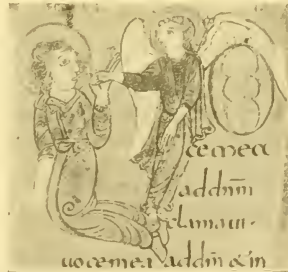 VO
ce mea
ad dn̄m
clamaui·
uoce mea ad dm̄ & in